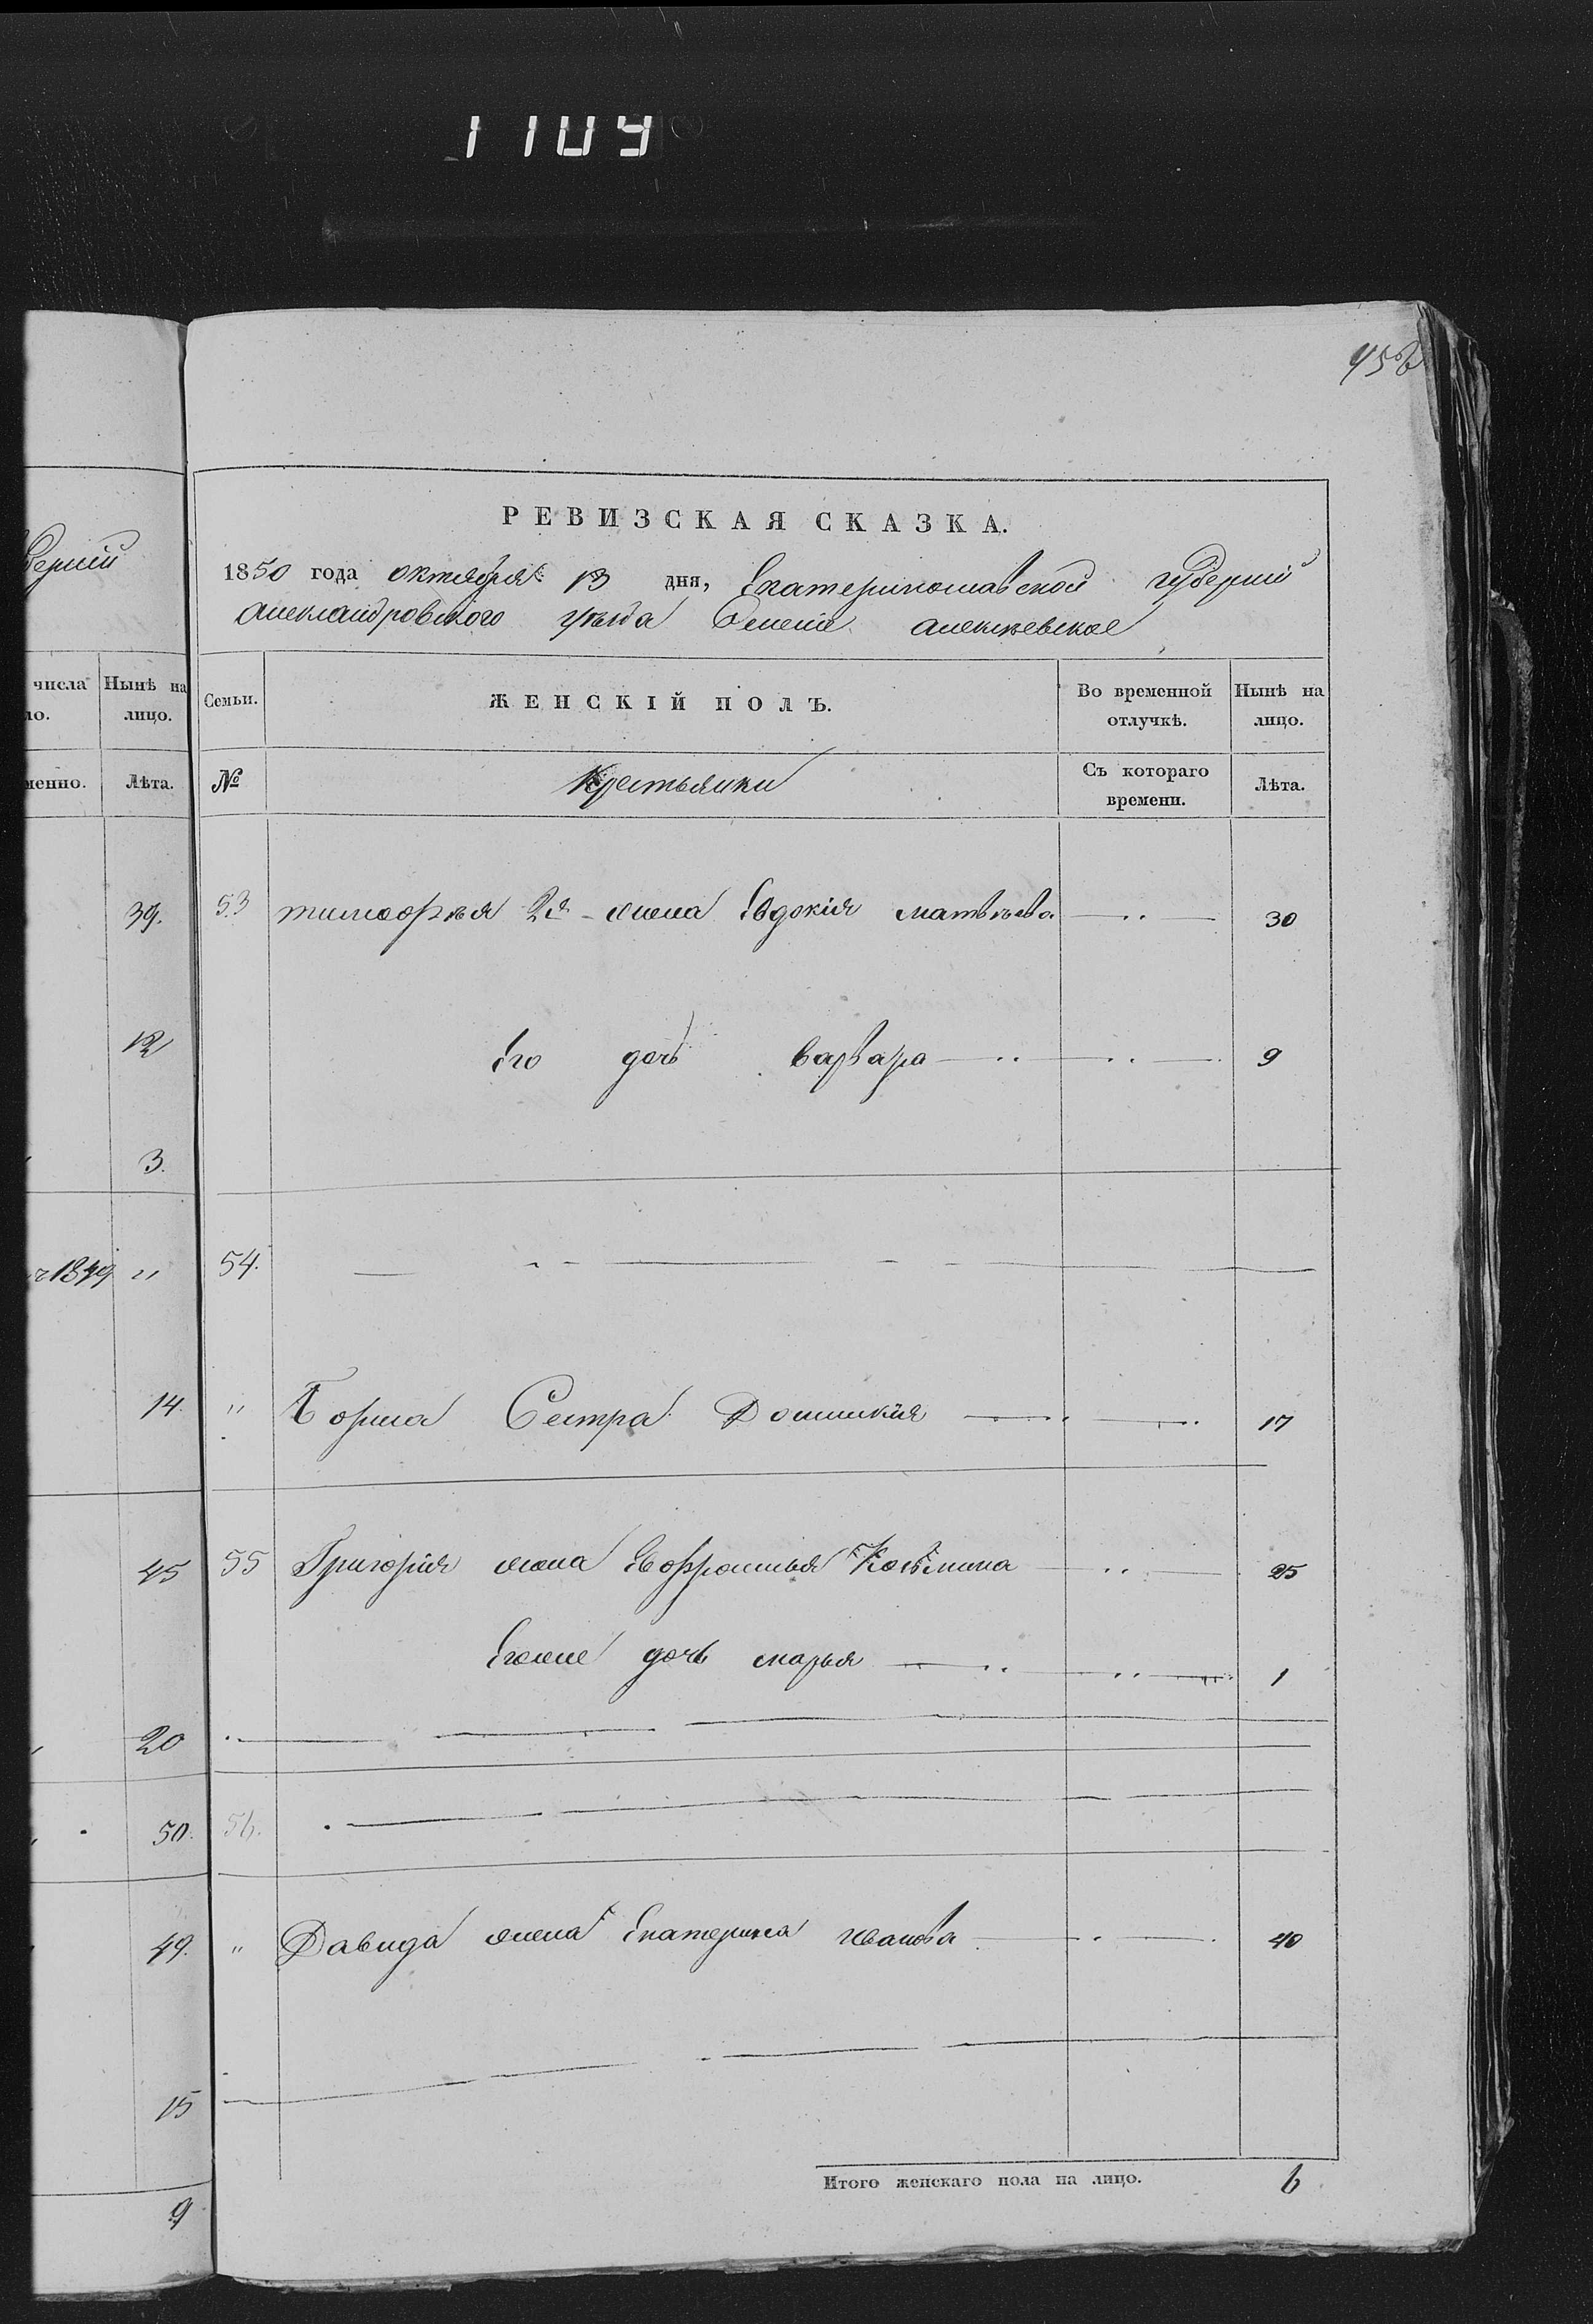 1109
458
РЕВИЗСКАЯ СКАЗКА.
1850 года октября 13 дня, Екатеринославской губерніи
Александровского уѣзда Селеніе алексѣевское
Семьи. ЖЕНСКІЙ ПОЛЪ. Во временной отлучкѣ. Нынѣ на лицо.
№ Крестьянки Съ котораго времени. Лѣта.
53 тимофѣя 2я жена Евдокія матвѣева 30
Его дочь варвара 9
54.
" Бориса Сестра Домникія 17
55 Григорія жена Евфросинья Козьмина 25
Егоже дочь марья 1
56.
" Давида жена Екатерина иванова 40
Итого женскаго пола на лицо. 6
берніи
числа Нынѣ на
ло. лицо.
менно. Лѣта.
39.
12
3.
1849 "
14.
45
20
50.
49.
15
9